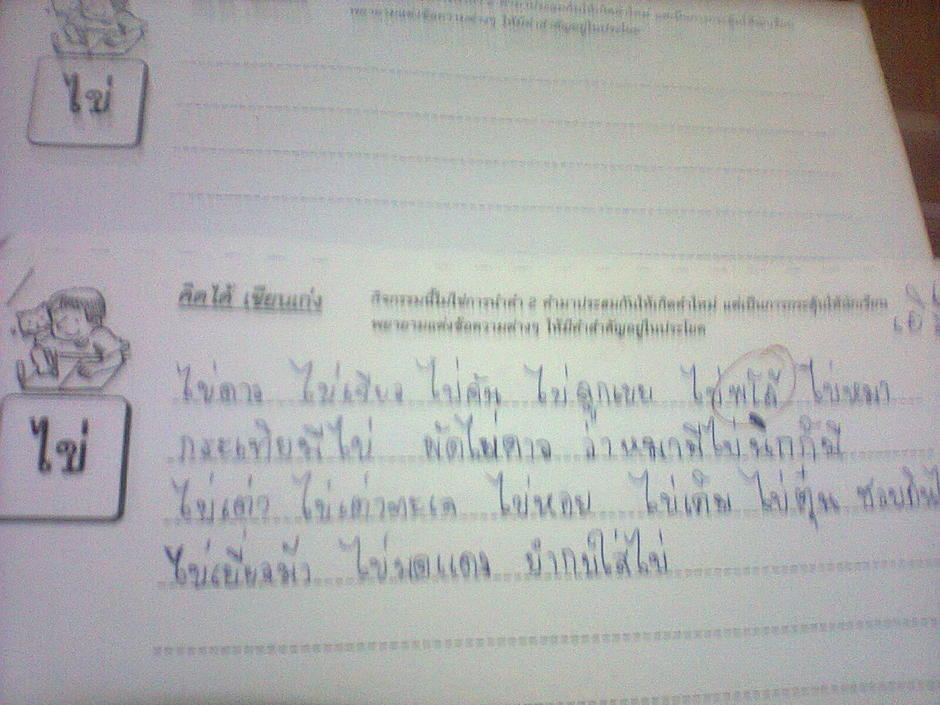 พยายามแต่งข้อความต่างๆ ให้มีคำสำคัญอยู่ในประโยค
ไข่
คิดได้ เขียนเก่ง
กิจกรรมนี้ไม่ใช่การนำคำ 2 คำมาประสมกันให้เกิดคำใหม่ แต่เป็นการกระตุ้นให้นักเรียน
พยายามแต่งข้อความต่างๆ ให้มีคำสำคัญอยู่ในประโยค
ไข่
ไข่ดาว ไข่เจียว ไข่ต้ม ไข่ลูกเขย ไข่ ไข่หมา
กระเทียมมีไข่ ผัดไข่ดาว มีไข่นกก็มี
ไข่เต่า ไข่เต่าทะเล ไข่หอย ไข่เค็ม ไข่ตุ๋น ชอบกิน
ไข่เยี่ยวม้า ไข่มดแดง ใส่ไข่